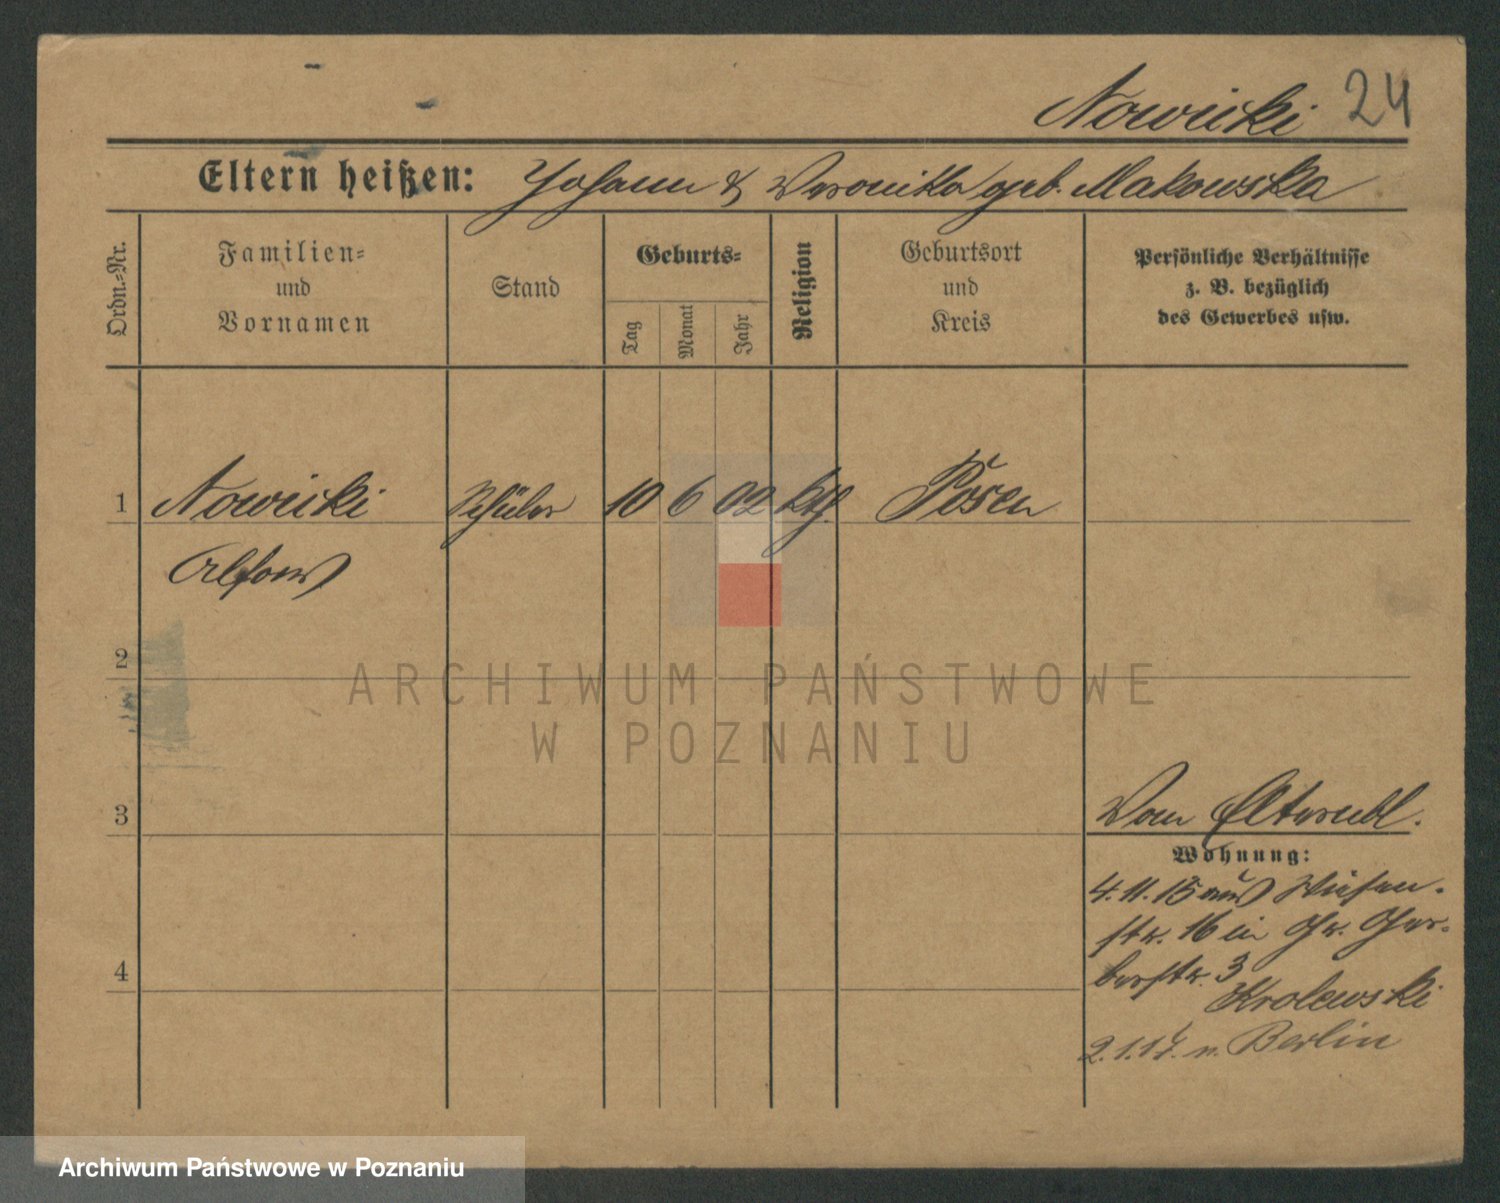 Nowicki 24
Eltern heißen: Johann & Veronika geb. Makowska
Ordn.=Nr.
Familien=
und
Vornamen
Stand
Geburts=
Tag
Monat
Jahr
Religion
Geburtsort
und
Kreis
Persönliche Verhältnisse
z. B. bezüglich
des Gewerbes usw.
1 Nowicki Schüler 10 6 02 kth. Posen
Alfons
2
ARCHIWUM PAŃSTWOWE
W POZNANIU
3
Vom Elternbl.
Wohnung:
4.11.15 aus Wiesen-
str. 16 in Gr. Ger-
berstr. 3
4
Krolewski
2.1.17. n. Berlin
Archiwum Państwowe w Poznaniu